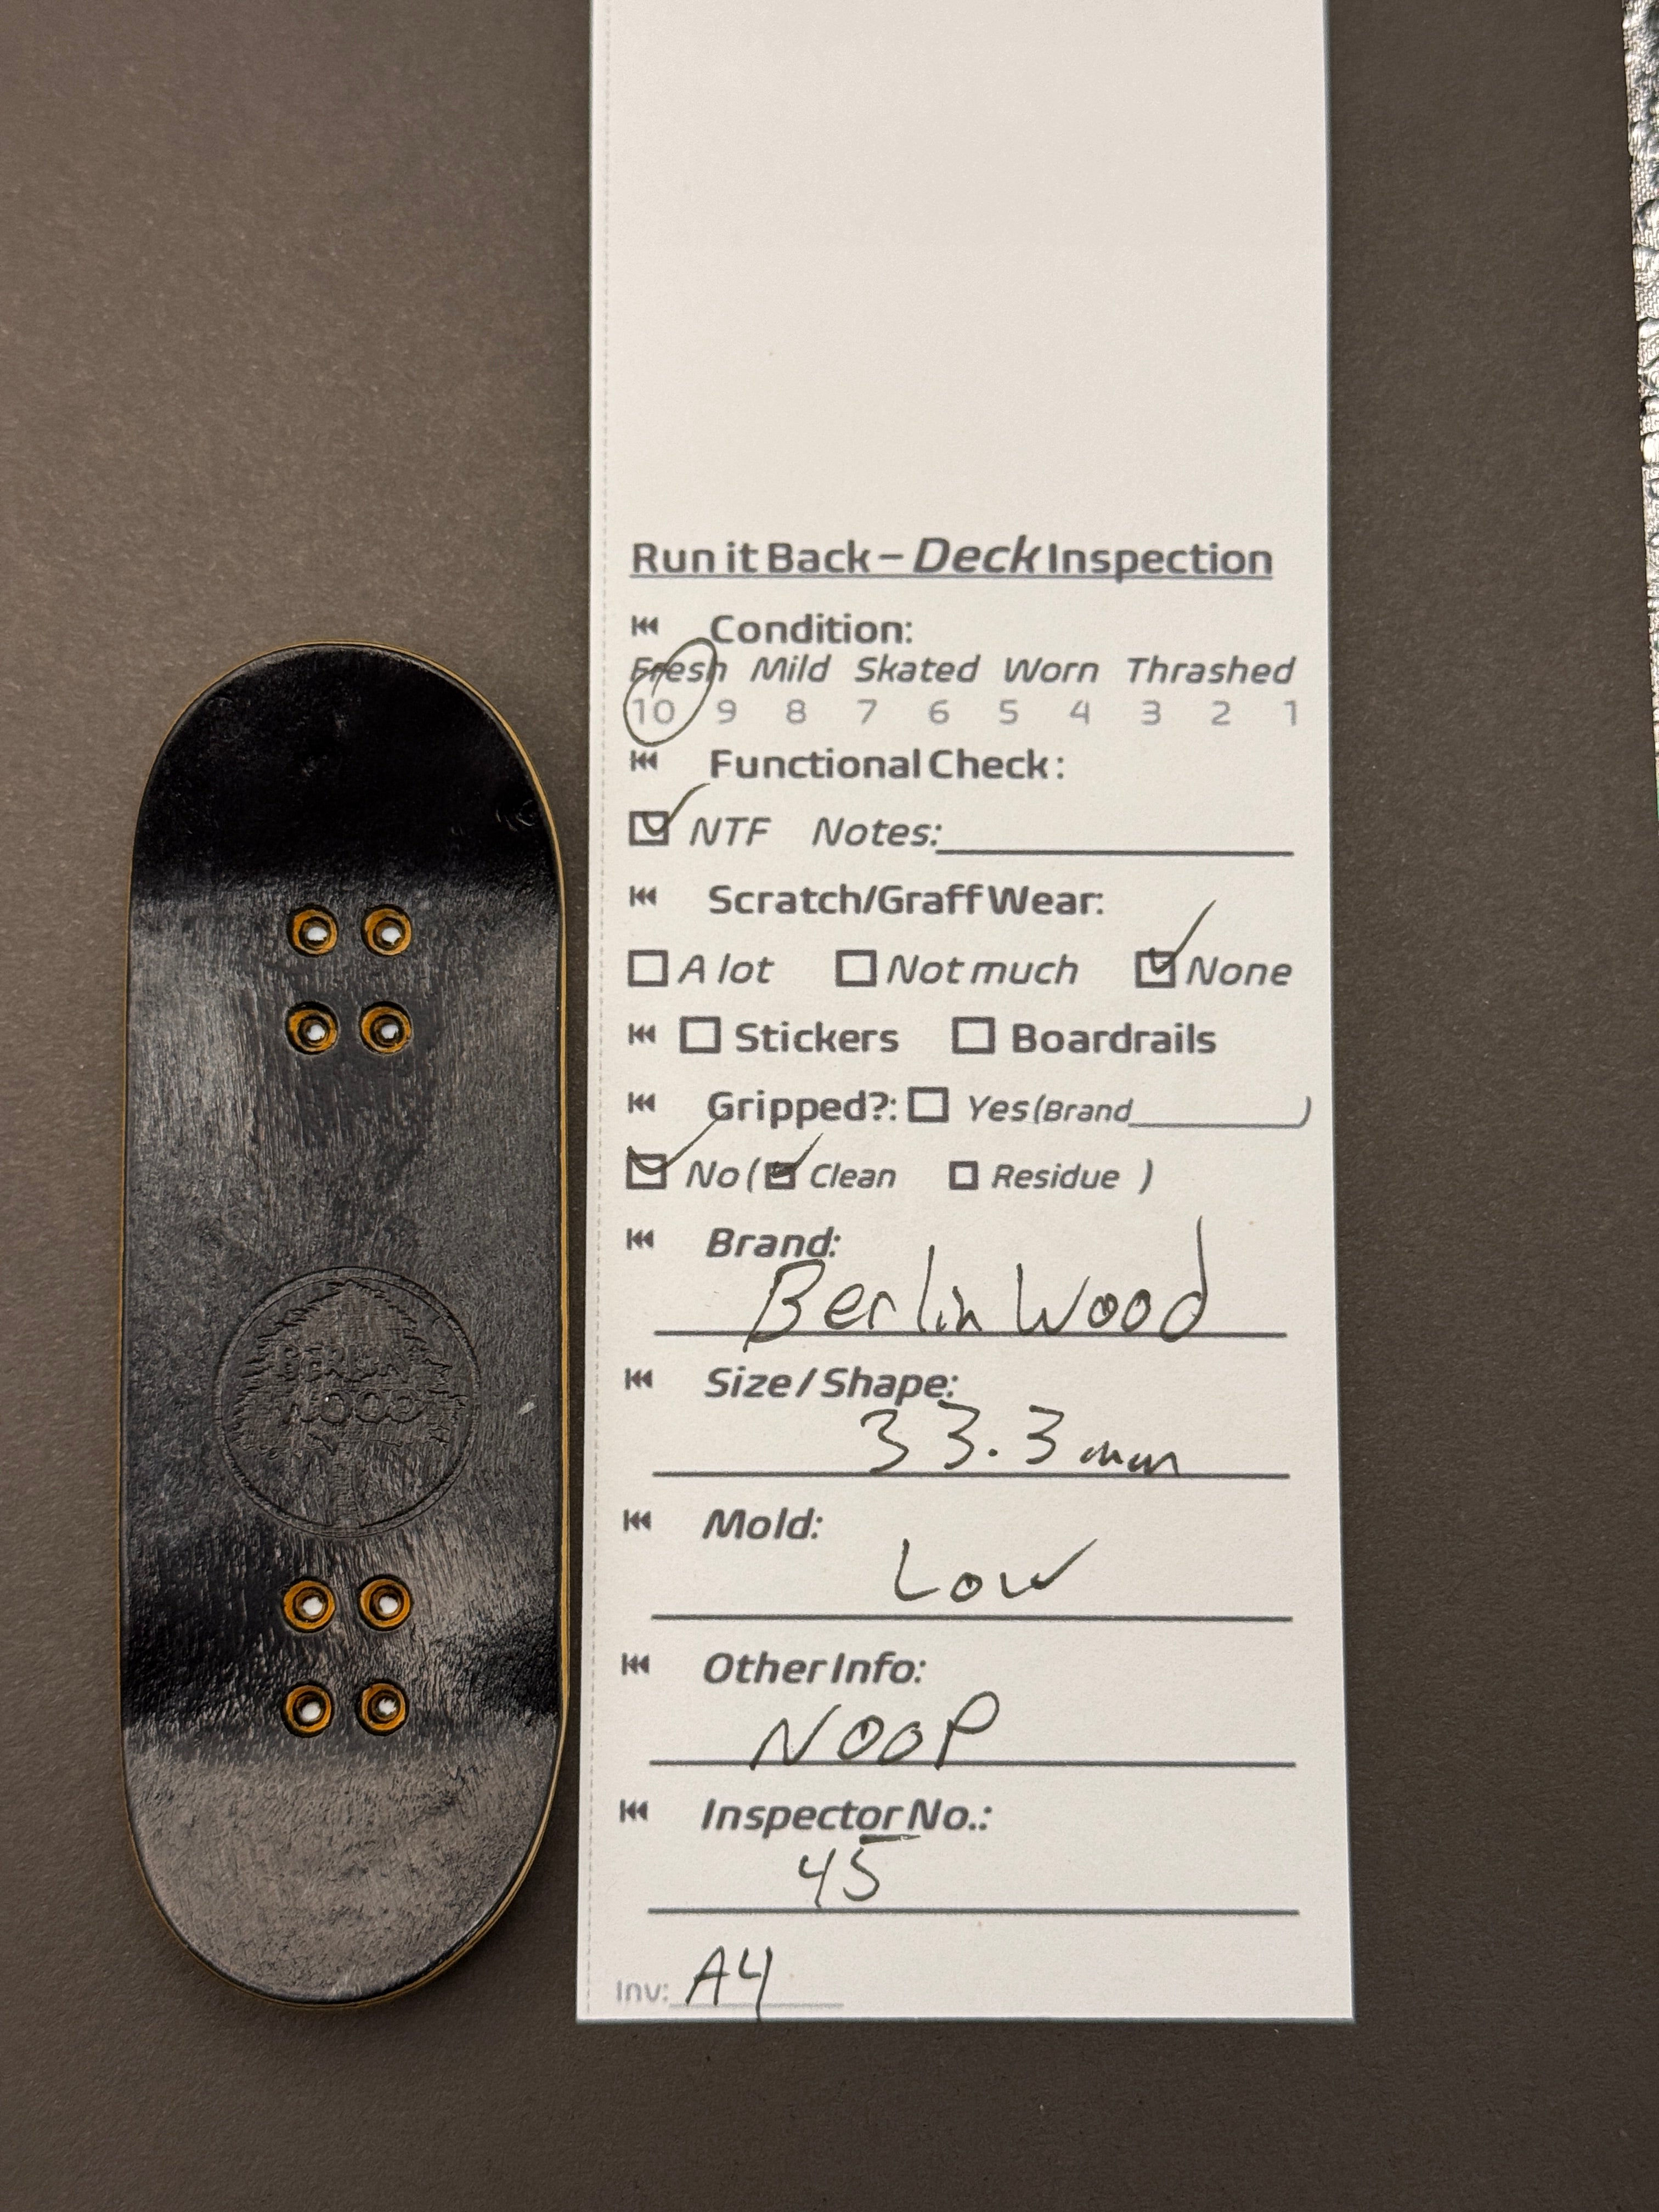 Run it Back – Deck Inspection
Condition:
Fresh Mild Skated Worn Thrashed
10 9 8 7 6 5 4 3 2 1
Functional Check:
NTF Notes:
Scratch/Graff Wear:
A lot Not much None
Stickers Boardrails
Gripped?: Yes (Brand )
No ( Clean Residue )
Brand:
Berlin Wood
Size / Shape:
33.3 mm
Mold:
Low
Other Info:
NOOP
Inspector No.:
45
Inv: A4
BERLIN
WOOD